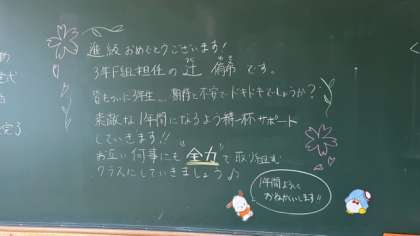 進級おめでとうございます!
3年F組担任の です。
皆もついに3年生… 期待と不安でドキドキでしょうか?
素敵な1年間になるよう精一杯サポート
していきます!!
お互い何事にも"全力"で取り組む
クラスにしていきましょう♪
1年間よろしく
おねがいします!!
完了